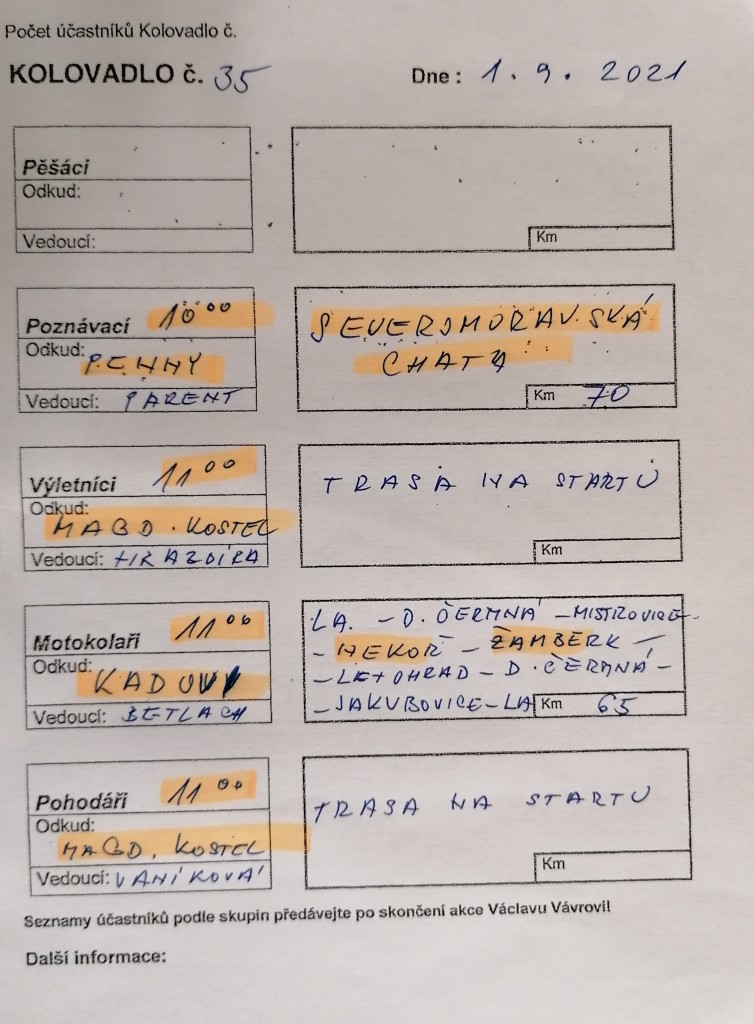 Počet účastníků Kolovadlo č.
KOLOVADLO č. 35 Dne : 1. 9. 2021
Pěšáci
Odkud:
Vedoucí:
Km
Poznávací 10⁰⁰
Odkud:
PENNY
Vedoucí: PARENT
SEVEROMORAVSKÁ
CHATA
Km 70
Výletníci 11⁰⁰
Odkud:
MAGD. KOSTEL
Vedoucí: HRAZDÍRA
TRASA NA STARTU
Km
Motokolaři 11⁰⁰
Odkud:
KADOVI
Vedoucí: BETLACH
LA. – D. ČERMNÁ – MISTROVICE –
– NEKOŘ – ŽAMBERK –
– LETOHRAD – D. ČERMNÁ –
– JAKUBOVICE – LA
Km 65
Pohodáři 11⁰⁰
Odkud:
MAGD. KOSTEL
Vedoucí: VANÍKOVÁ
TRASA NA STARTU
Km
Seznamy účastníků podle skupin předávejte po skončení akce Václavu Vávrovi!
Další informace: